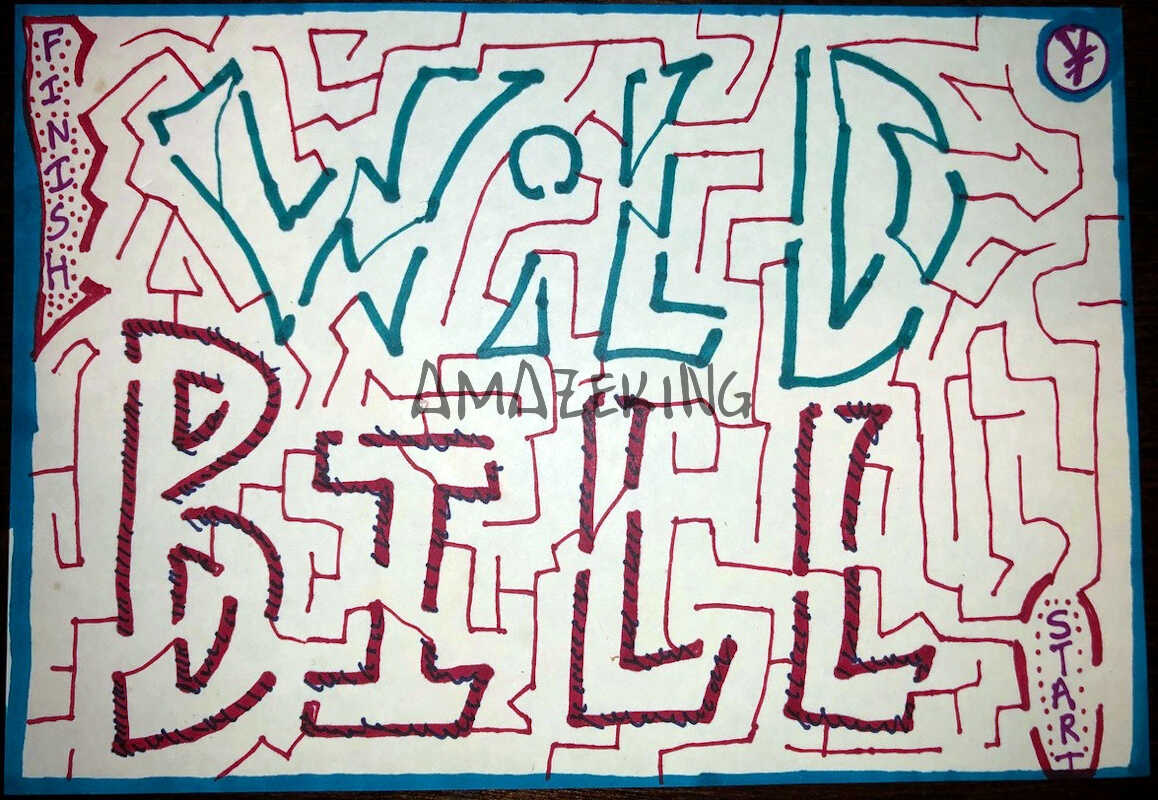 FINISH
¥
WiLD
AMAZEKING
BILL
START